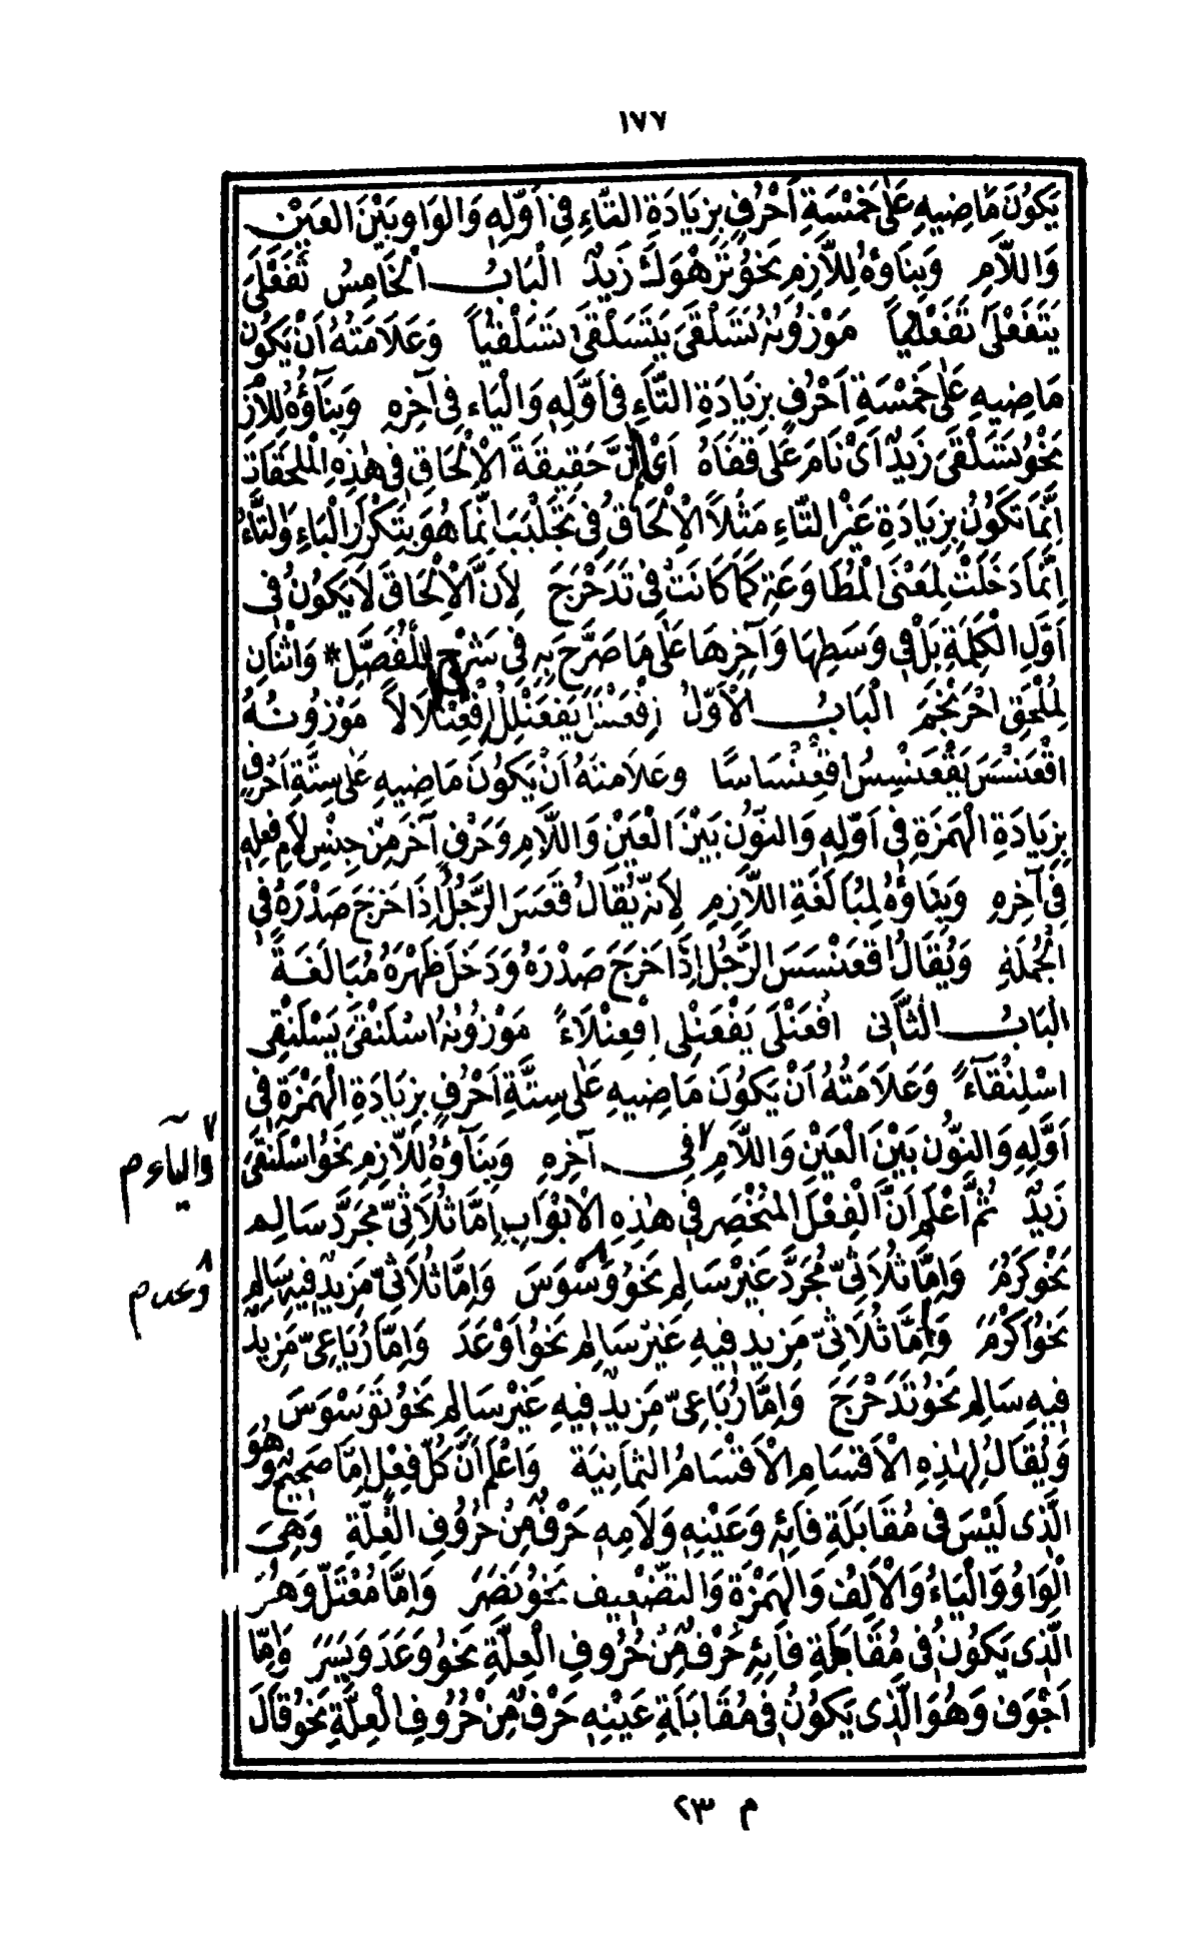 ١٧٧
يَكُونَ مَاضِيهِ عَلٰى خَمْسَةِ اَحْرُفٍ بِزِيَادَةِ التَّاءِ فِى اَوَّلِهِ وَالوَاوِ بَيْنَ العَيْنِ
وَاللاَّمِ وَبِنَاؤُهُ لِلاَّزِمِ نَحْوُ تَرَهْوَكَ زَيْدٌ الْبَابُ الْخَامِسُ تَفَعْلَىَ
يَتَفَعْلَىَ تَفَعْلِياً مَوْزُونُهُ تَسَلْقَىَ يَتَسَلْقَىَ تَسَلْقِياً وَعَلاَمَتُهُ اَنْ يَكُونَ
مَاضِيهِ عَلٰى خَمْسَةِ اَحْرُفٍ بِزِيَادَةِ التَّاءِ فِى اَوَّلِهِ وَالْيَاءِ فِى آخِرِهِ وَبِنَاؤُهُ لِلاَّزِمِ
نَحْوُ تَسَلْقَىَ زَيْدٌ اَىْ نَامَ عَلٰى قَفَاهُ اَىْ اِنَّ حَقِيقَةَ الْاِلْحَاقِ فِى هٰذِهِ الْمُلْحَقَاتِ
اِنَّمَا تَكُونُ بِزِيَادَةِ غَيْرِ التَّاءِ مَثَلاً الْاِلْحَاقُ فِى تَجَلْبَبَ اِنَّمَا هُوَ بِتَكْرَارِ الْبَاءِ وَالتَّاءُ
اِنَّمَا دَخَلَتْ لِمَعْنَى الْمُطَاوَعَةِ كَمَا كَانَتْ فِى تَدَحْرَجَ لِاَنَّ الْاِلْحَاقَ لاَ يَكُونُ فِى
اَوَّلِ الْكَلِمَةِ بَلْ فِى وَسَطِهَا وَآخِرِهَا عَلٰى مَا صَرَّحَ بِهِ فِى شَرْحِ الْمُفَصَّلِ * وَاثْنَانِ
لِمُلْحَقِ احْرَنْجَمَ الْبَابُ الْاَوَّلُ اِفْعَنْلَلَ يَفْعَنْلِلُ اِفْعِنْلاَلاً مَوْزُونُهُ
اقْعَنْسَسَ يَقْعَنْسِسُ اقْعِنْسَاسًا وَعَلاَمَتُهُ اَنْ يَكُونَ مَاضِيهِ عَلٰى سِتَّةِ اَحْرُفٍ
بِزِيَادَةِ الْهَمْزَةِ فِى اَوَّلِهِ وَالنُّونِ بَيْنَ الْعَيْنِ وَاللاَّمِ وَحَرْفٍ آخَرَ مِنْ جِنْسِ لاَمِ فِعْلِهِ
فِى آخِرِهِ وَبِنَاؤُهُ لِمُبَالَغَةِ اللاَّزِمِ لِاَنَّهُ يُقَالُ قَعَسَ الرَّجُلُ اِذَا خَرَجَ صَدْرُهُ فِى
الْجُمْلَةِ وَيُقَالُ اقْعَنْسَسَ الرَّجُلُ اِذَا خَرَجَ صَدْرُهُ وَدَخَلَ ظَهْرُهُ مُبَالَغَةً
الْبَابُ الثَّانِى افْعَنْلَى يَفْعَنْلِى اِفْعِنْلاَءً مَوْزُونُهُ اسْلَنْقَىَ يَسْلَنْقِى
اسْلِنْقَاءً وَعَلاَمَتُهُ اَنْ يَكُونَ مَاضِيهِ عَلٰى سِتَّةِ اَحْرُفٍ بِزِيَادَةِ الْهَمْزَةِ فِى
اَوَّلِهِ وَالنُّونِ بَيْنَ الْعَيْنِ وَاللاَّمِ ٧ فِى آخِرِهِ وَبِنَاؤُهُ لِلاَّزِمِ نَحْوُ اسْلَنْقَىَ
٧ والياء م
زَيْدٌ ثُمَّ اعْلَمْ اَنَّ الْفِعْلَ الْمُنْحَصِرَ فِى هٰذِهِ الْاَبْوَابِ اِمَّا ثُلاَثِىٌّ مُجَرَّدٌ سَالِمٌ
نَحْوُ كَرُمَ وَاِمَّا ثُلاَثِىٌّ مُجَرَّدٌ غَيْرُ سَالِمٍ نَحْوُ ٨ وَسْوَسَ وَاِمَّا ثُلاَثِىٌّ مَزِيدٌ فِيهِ سَالِمٌ
٨ وعد م
نَحْوُ اَكْرَمَ وَاِمَّا ثُلاَثِىٌّ مَزِيدٌ فِيهِ غَيْرُ سَالِمٍ نَحْوُ اَوْعَدَ وَاِمَّا رُبَاعِىٌّ مَزِيدٌ
فِيهِ سَالِمٌ نَحْوُ تَدَحْرَجَ وَاِمَّا رُبَاعِىٌّ مَزِيدٌ فِيهِ غَيْرُ سَالِمٍ نَحْوُ تَوَسْوَسَ
وَيُقَالُ لِهٰذِهِ الْاَقْسَامِ الْاَقْسَامُ الثَّمَانِيَةُ وَاعْلَمْ اَنَّ كُلَّ فِعْلٍ اِمَّا صَحِيحٌ وَهُوَ
الَّذِى لَيْسَ فِى مُقَابَلَةِ فَائِهِ وَعَيْنِهِ وَلاَمِهِ حَرْفٌ مِنْ حُرُوفِ الْعِلَّةِ وَهِىَ
الْوَاوُ وَالْيَاءُ وَالْاَلِفُ وَالْهَمْزَةُ وَالتَّضْعِيفُ نَحْوُ نَصَرَ وَاِمَّا مُعْتَلٌّ وَهُوَ
الَّذِى يَكُونُ فِى مُقَابَلَةِ فَائِهِ حَرْفٌ مِنْ حُرُوفِ الْعِلَّةِ نَحْوُ وَعَدَ وَيَسَرَ وَاِمَّا
اَجْوَفُ وَهُوَ الَّذِى يَكُونُ فِى مُقَابَلَةِ عَيْنِهِ حَرْفٌ مِنْ حُرُوفِ الْعِلَّةِ نَحْوُ قَالَ
م ٢٣